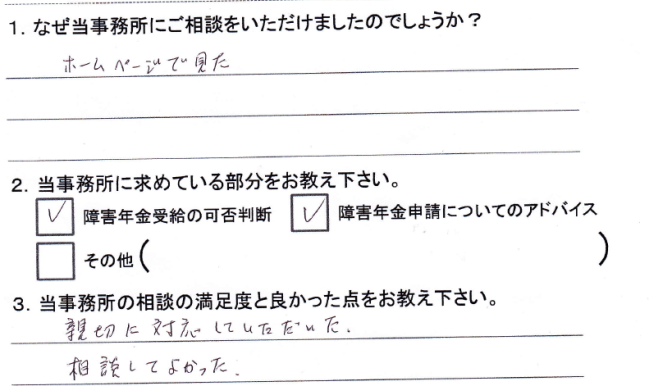 1. なぜ当事務所にご相談をいただけましたのでしょうか？
ホームページで見た
2. 当事務所に求めている部分をお教え下さい。
障害年金受給の可否判断 障害年金申請についてのアドバイス
その他( )
3. 当事務所の相談の満足度と良かった点をお教え下さい。
親切に対応していただいた.
相談してよかった.